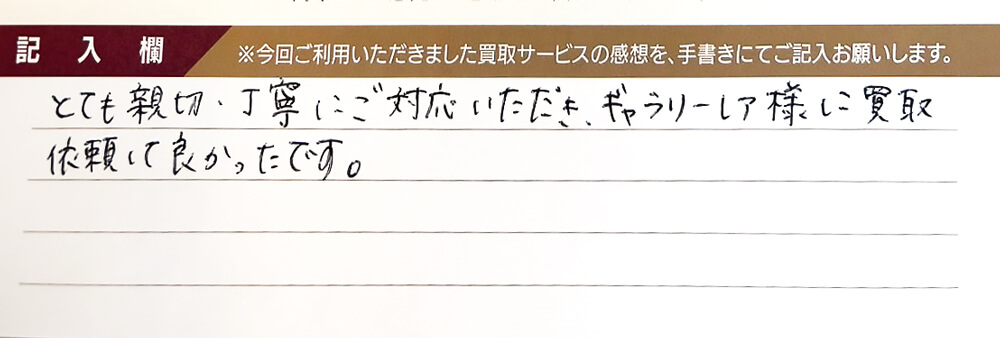 記入欄 ※今回ご利用いただきました買取サービスの感想を、手書きにてご記入お願いします。
とても親切・丁寧にご対応いただき、ギャラリーレア様に買取
依頼して良かったです。